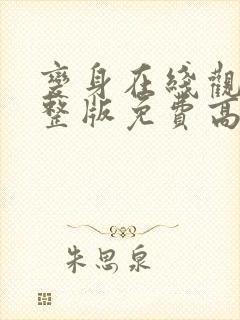 變身在綫觀
整版免費高
朱思泉